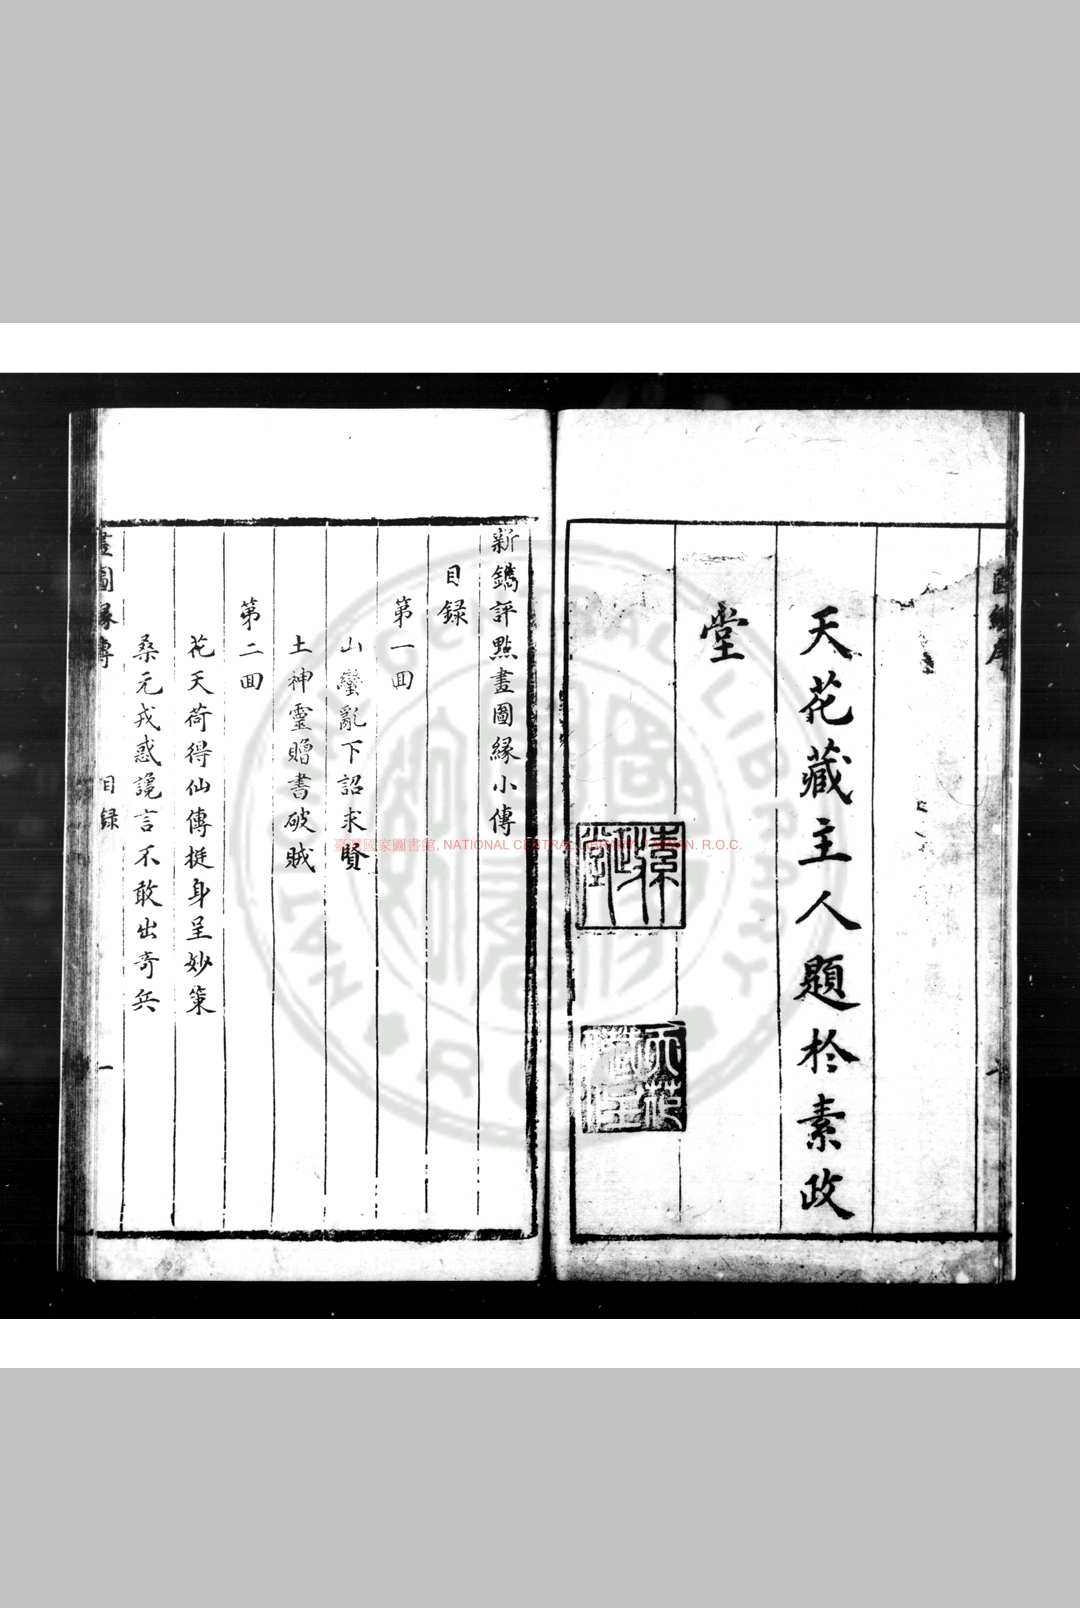 天花藏主人題於素政
堂
素政堂
天花藏主人
新鐫評點畫圖緣小傳
目録
第一囬
山蠻亂下詔求賢
土神靈贈書破賊
第二囬
花天荷得仙傳挺身呈妙策
桑元戎惑讒言不敢出奇兵
畫圖緣傳
目録
一
NATIONAL CENTRAL LIBRARY
R.O.C.
國家圖書館, NATIONAL CENTRAL LIBRARY, TAIWAN. R.O.C.